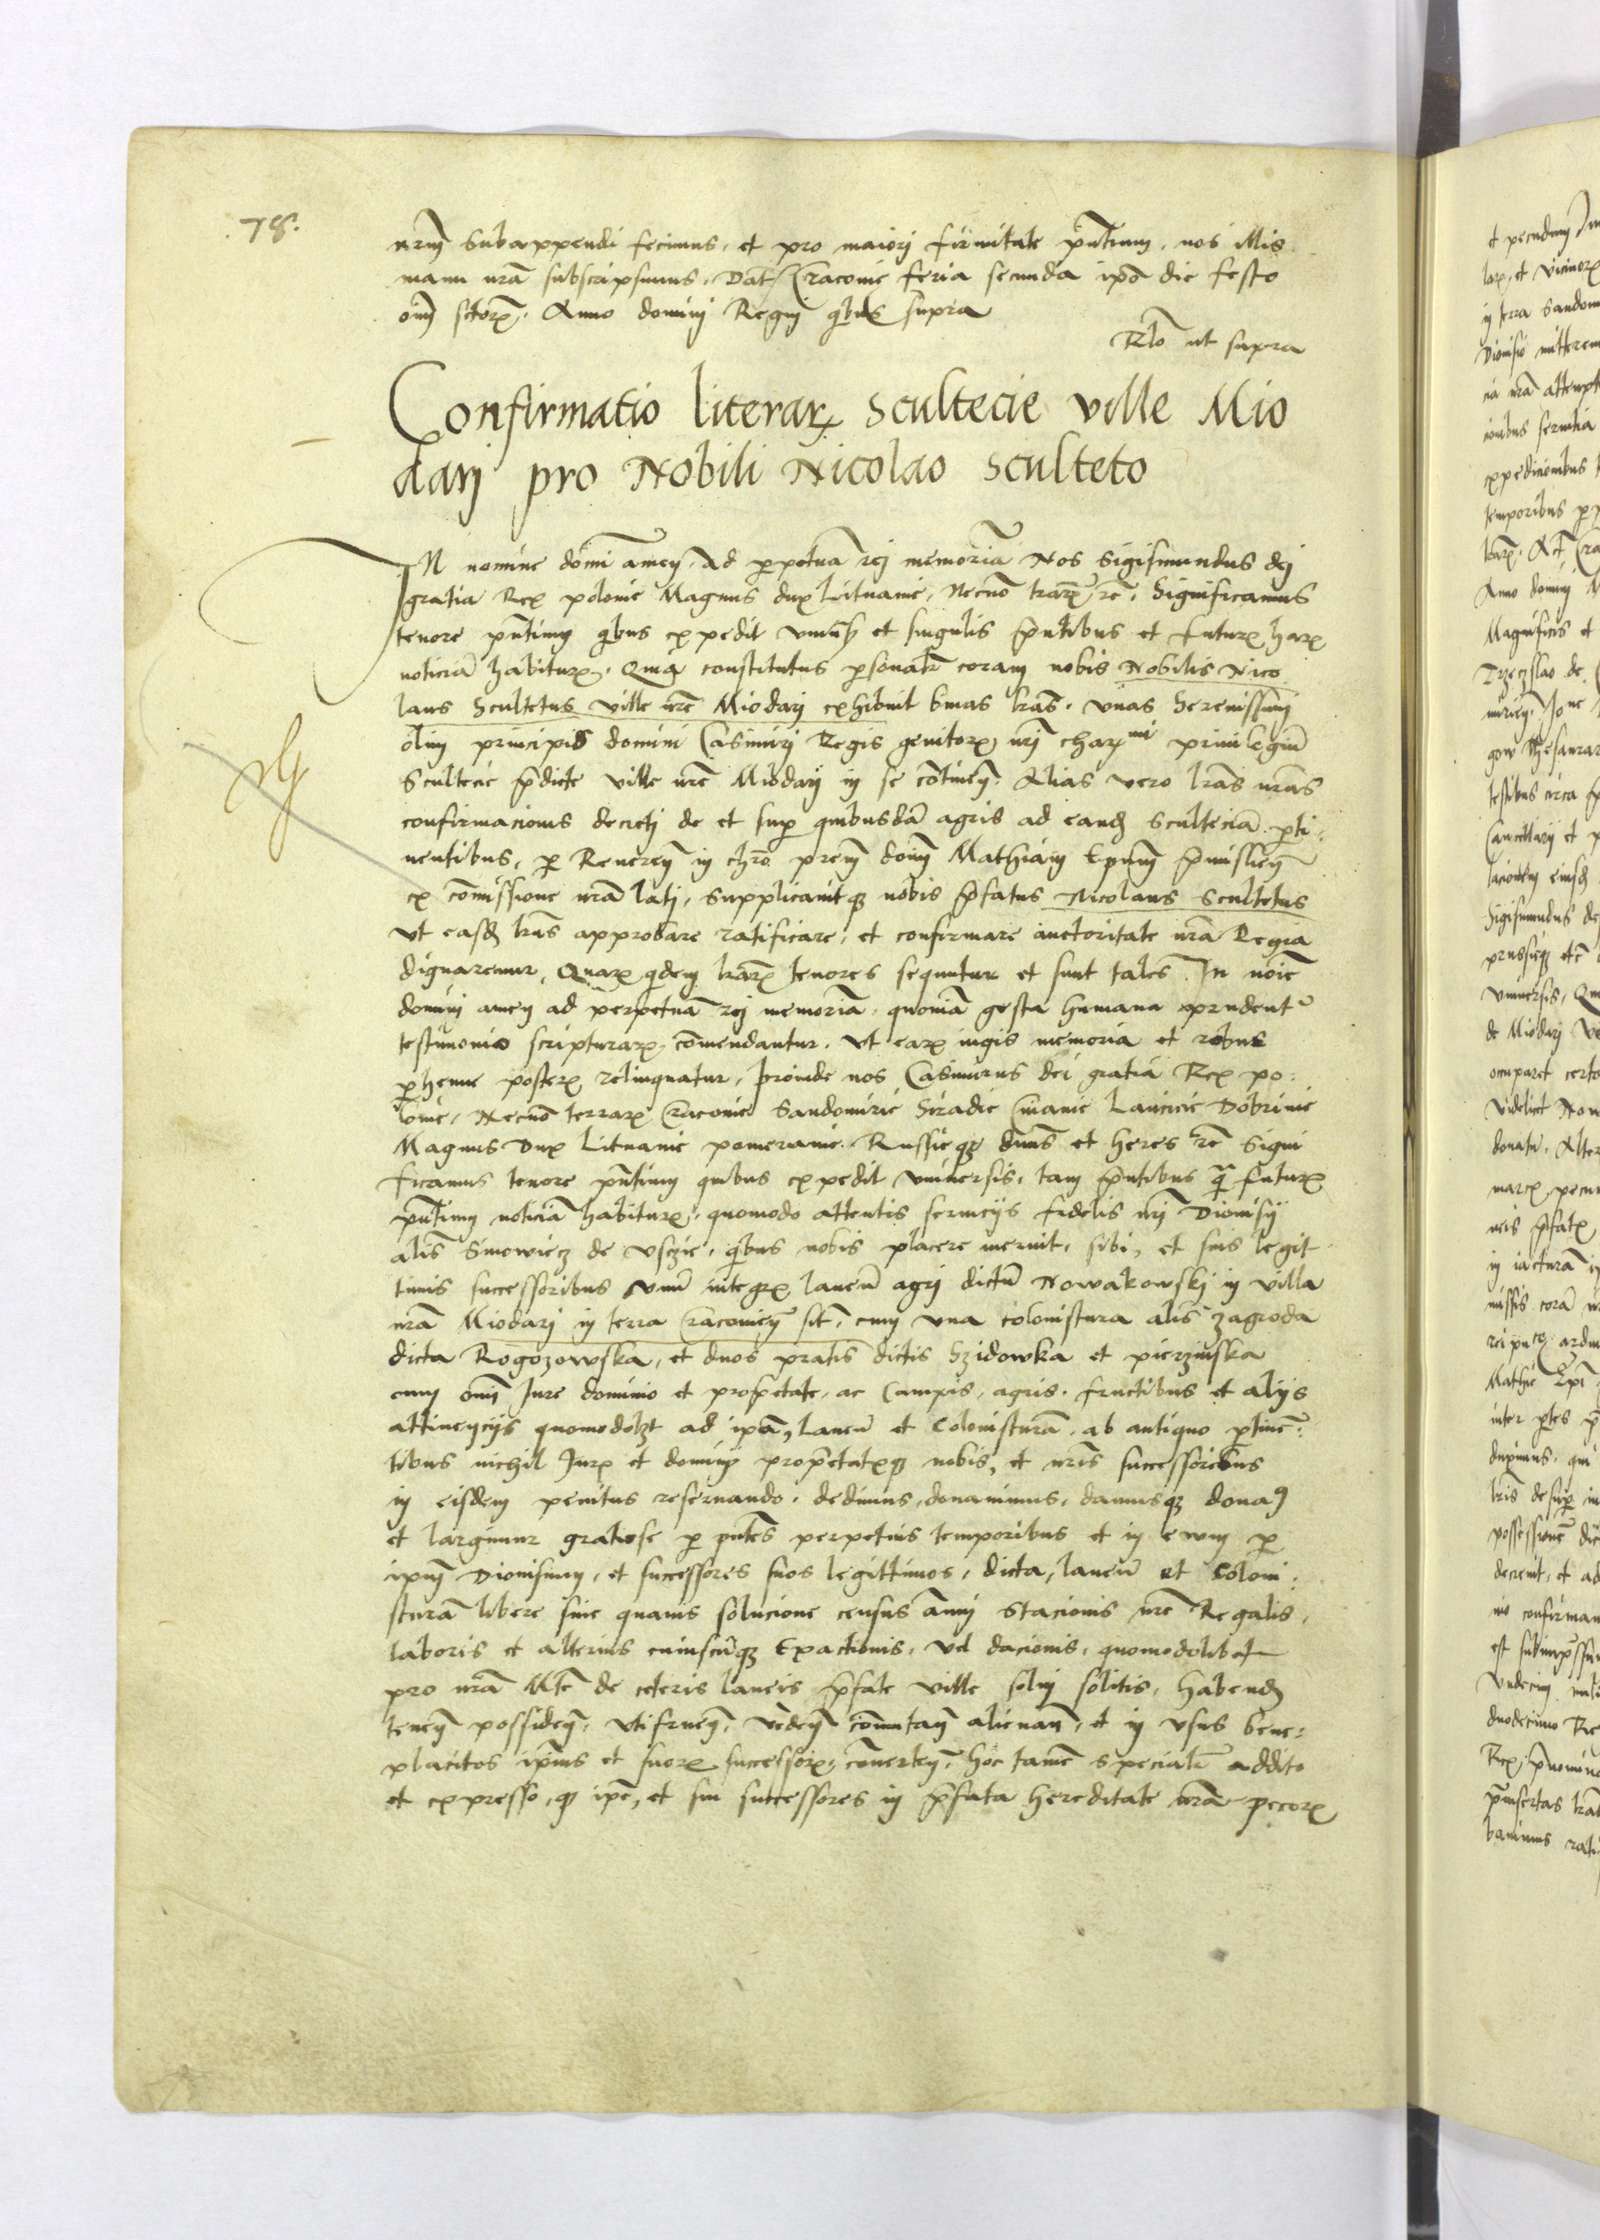 78.
nrm̄ subappendi fecimus, et pro maiori firmitate pn̄tium, nos illis
manu nrā subscripsimus. Dat Cracovie feria secunda ipō die festo
oīm sctorꝝ. Anno domini Regni qbus supra
Rlō ut supra
Confirmatio literarꝝ scultecie ville Mio
darj pro Nobili Nicolao sculteto
IN nomine dōmi amen. Ad ꝑpetuā rej memoriā Nos Sigismundus dej
gratia Rex polonie Magnus dux Lituanie, Necnō trarꝝ rē. Significamus
tenore pn̄tium qbus expedit et singulis pn̄tibus et futurꝝ harꝝ
noticiā habiturꝝ. Qmō constitutus ꝑsonalr̄ coram nobis Nobilis Nico
laus Scultetus ville nrē Miodarj exhibuit binas lrās. Vnas Serenissimi
olim principis domini Casimirj Regis genitorꝝ nrj charmi privilegiū
Scultecie p̄dicte ville nrē Miodarj in se cōtinen. Alias vero lrās nrās
confirmacionis decreti de et sup quibusdā agris ad eand sculteciā ꝑti-
nentibus, ꝑ Reveren in chrō prēm dōm Mathiam Epūm p̄mislien
ex cōmissione nrā latj, supplicavitqꝫ nobis p̄fatus Nicolaus Scultetus
Vt easd lrās approbare ratificare, et confirmare auctoritate nrā Regia
dignaremur, Quarꝝ qdem lrārꝝ tenores sequntur et sunt tales. In noīe
domini amen ad perpetuā rej memoriā, quoniā gesta humana prudent
testimonio scripturarꝝ cōmendantur. Vt earꝝ iugis memoria et robur
ꝑhenne posterꝝ relinquatur, Proinde nos Casimirus dei gratia Rex po-
lonie, Necnō terrarꝝ Cracovie Sandomirie Siradie Cuiavie Lancicie Dobrinie
Magnus Dux Lituanie pomeranie. Russieqꝫ dn̄us et heres rē Signi
ficamus tenore pn̄tium quibus expedit vniversis, tam p̄ntibus q̄ futurꝝ
pn̄tium noticiā habiturꝝ, quomodo attentis serviciis fidelis nrj Dionisij
ališ Smowicz de Vsczie, qbus nobis placere meruit, sibi, et suis legit
timis successoribus vnū integrꝝ laneū agrj dictū Nowakowskj in villa
nrā Miodarj in terra Cracovien sit, cum vna colonistura ališ zagroda
dicta Rogozowska, et duos pratis dictis Szidowka et pierzinska
cum omī Jure dominio et prop̄etate, ac campis, agris, fructibus et alijs
attinencijs quomodolꝫt ad ipā, laneū et Colonisturā, ab antiquo ꝑtinen
tibus nichil Jurꝝ et dominij prop̄etatꝝqꝫ nobis, et nrīs successoribus
in eisdem penitus reservando, dedimus, donavimus, damusqꝫ dona
et largimur gratiose ꝑ pn̄tes perpetuis temporibus et in ewm ꝑ
ipm̄ Dionisium, et successores suos legittimos, dicta, laneū et Coloni-
sturā libere sine quavis solucione census annj stacionis nrē Regalis,
laboris et alterius cuiuscūqꝫ Exactionis, vel dacionis, quomodolibet
pro nrā Mtē de ceteris laneis p̄fate ville solvi solitis, habend
tenen possiden, vtifruen, venden cōmutan alienan, et in vsus bene-
placitos ipīus et suorꝝ successorꝝ, cōverten, hoc tamē specialr̄ addito
et expresso, qꝫ ipē, et sui successores in p̄fata hereditate nrā pecorꝝ